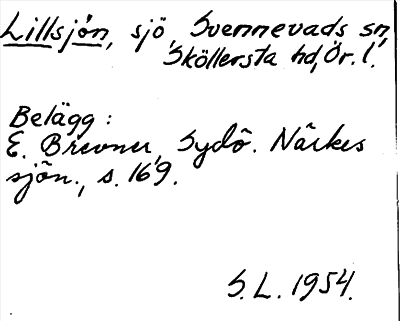 Lillsjön, sjö, Svennevads sn,
Sköllersta hd, Ör. l.
Belägg:
E. Brevner, Sydö. Närkes
sjön., s. 169.
S.L. 1954.